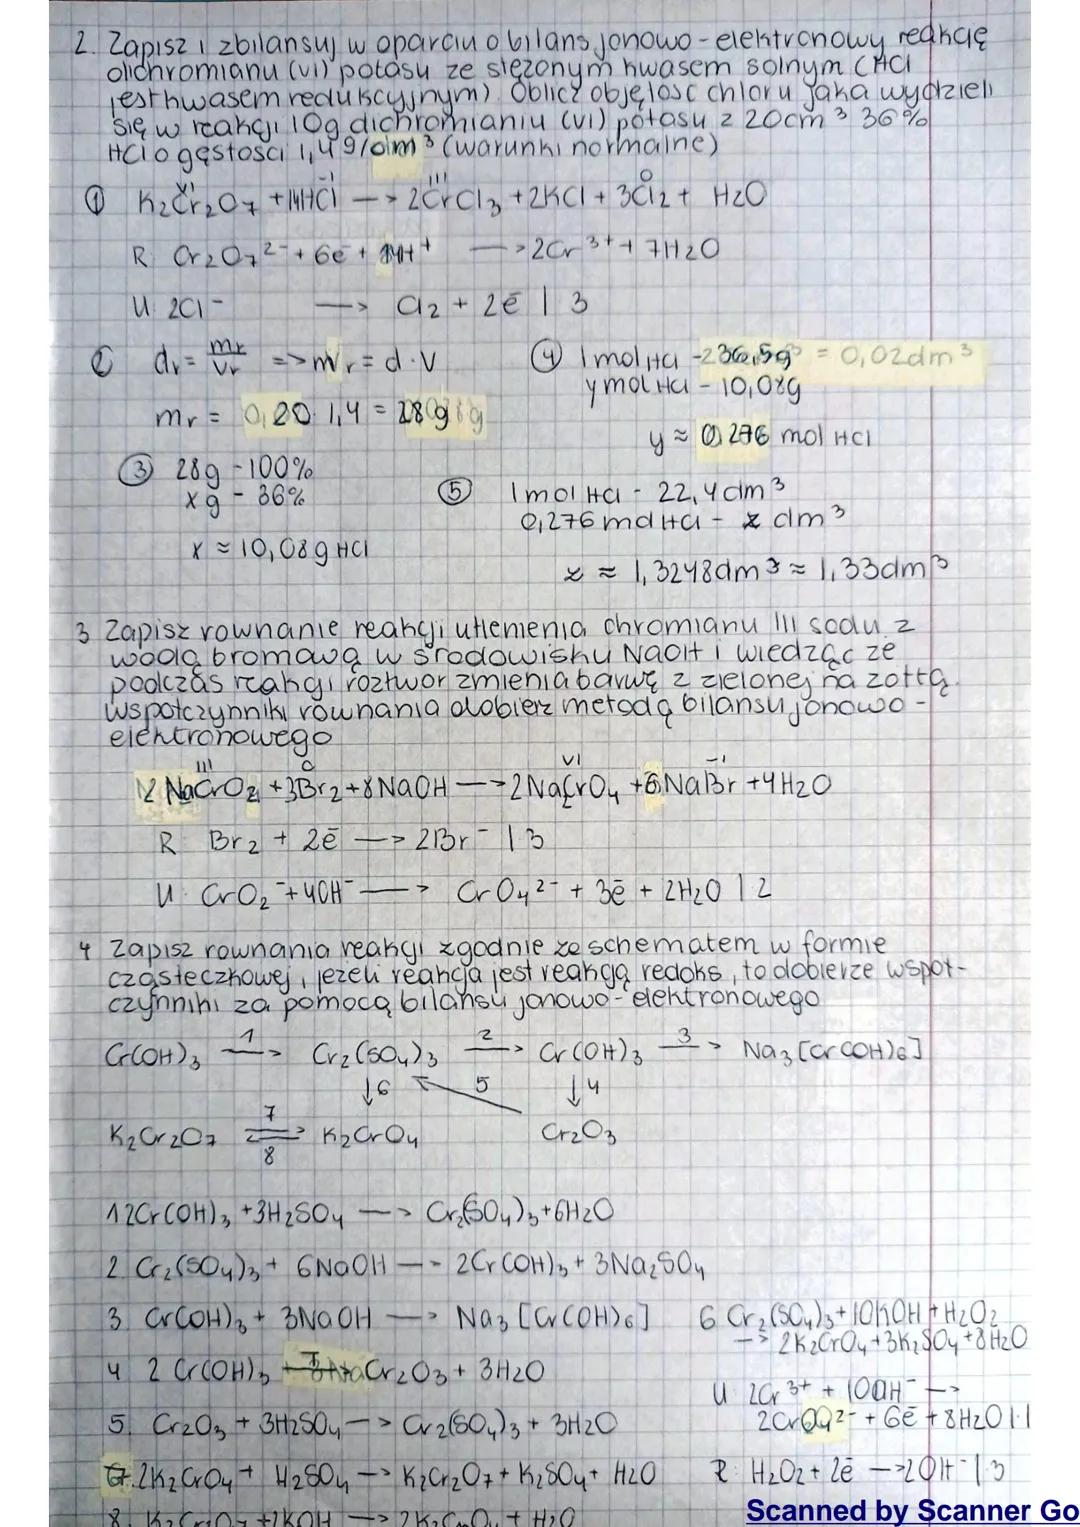 2. Zapisz i zbilansuj w oparciu o bilans jonowo-elektronowy reakcję
dichromianu (VI) potasu ze stężonym kwasem solnym (HCl
jest kwasem redukcyjnym). Oblicz objętość chloru jaka wydzieli
się w reakcji 10g dichromianiu (VI) potasu z 20cm³ 36%
HCl o gęstości 1,4 g/dm³ (warunki normalne)
VI -I III 0
① K₂Cr₂O₇ + 14HCl → 2CrCl₃ + 2KCl + 3Cl₂ + H₂O
R: Cr₂O₇²⁻ + 6e⁻ + 14H⁺ → 2Cr³⁺ + 7H₂O
U: 2Cl⁻ → Cl₂ + 2e⁻ | 3
② dr = mr/Vr => mr = d·V
mr = 0,20 · 1,4 = 28g
③ 28g - 100%
xg - 36%
x ≈ 10,08g HCl
④ 1 mol HCl - 36,5g = 0,02dm³
y mol HCl - 10,08g
y ≈ 0,276 mol HCl
⑤ 1 mol HCl - 22,4dm³
0,276 mol HCl - z dm³
z ≈ 1,3248dm³ ≈ 1,33dm³
3 Zapisz rownanie reakcji utlenienia chromianu III sodu z
wodą bromową w środowisku NaOH i wiedząc że
podczas reakcji roztwór zmienia barwę z zielonej na żółtą.
Współczynniki równania dobierz metodą bilansu jonowo-
elektronowego
III 0 VI -I
2 NaCrO₂ + 3Br₂ + 8NaOH → 2NaCrO₄ + 6NaBr + 4H₂O
R: Br₂ + 2e⁻ → 2Br⁻ | 3
U: CrO₂⁻ + 4OH⁻ → CrO₄²⁻ + 3e⁻ + 2H₂O | 2
4 Zapisz rownania reakcji zgodnie ze schematem w formie
cząsteczkowej, jeżeli reakcja jest reakcją redoks, to dobierze współ-
czynniki za pomocą bilansu jonowo-elektronowego
Cr(OH)₃ 1→ Cr₂(SO₄)₃ 2→ Cr(OH)₃ 3→ Na₃[Cr(OH)₆]
↓6 5 ↓4
K₂Cr₂O₇ 7 ⇄ 8 K₂CrO₄ Cr₂O₃
1 2Cr(OH)₃ + 3H₂SO₄ → Cr₂(SO₄)₃ + 6H₂O
2. Cr₂(SO₄)₃ + 6NaOH → 2Cr(OH)₃ + 3Na₂SO₄
3. Cr(OH)₃ + 3NaOH → Na₃[Cr(OH)₆]
4 2 Cr(OH)₃ T→ Cr₂O₃ + 3H₂O
5. Cr₂O₃ + 3H₂SO₄ → Cr₂(SO₄)₃ + 3H₂O
7. 2K₂CrO₄ + H₂SO₄ → K₂Cr₂O₇ + K₂SO₄ + H₂O
8. K₂Cr₂O₇ + 2KOH → 2K₂CrO₄ + H₂O
6 Cr₂(SO₄)₃ + 10KOH + H₂O₂
→ 2K₂CrO₄ + 3K₂SO₄ + 8H₂O
U: 2Cr³⁺ + 10OH⁻ →
2CrO₄²⁻ + 6e⁻ + 8H₂O |·1
R: H₂O₂ + 2e⁻ → 2OH⁻ | 3
Scanned by Scanner Go